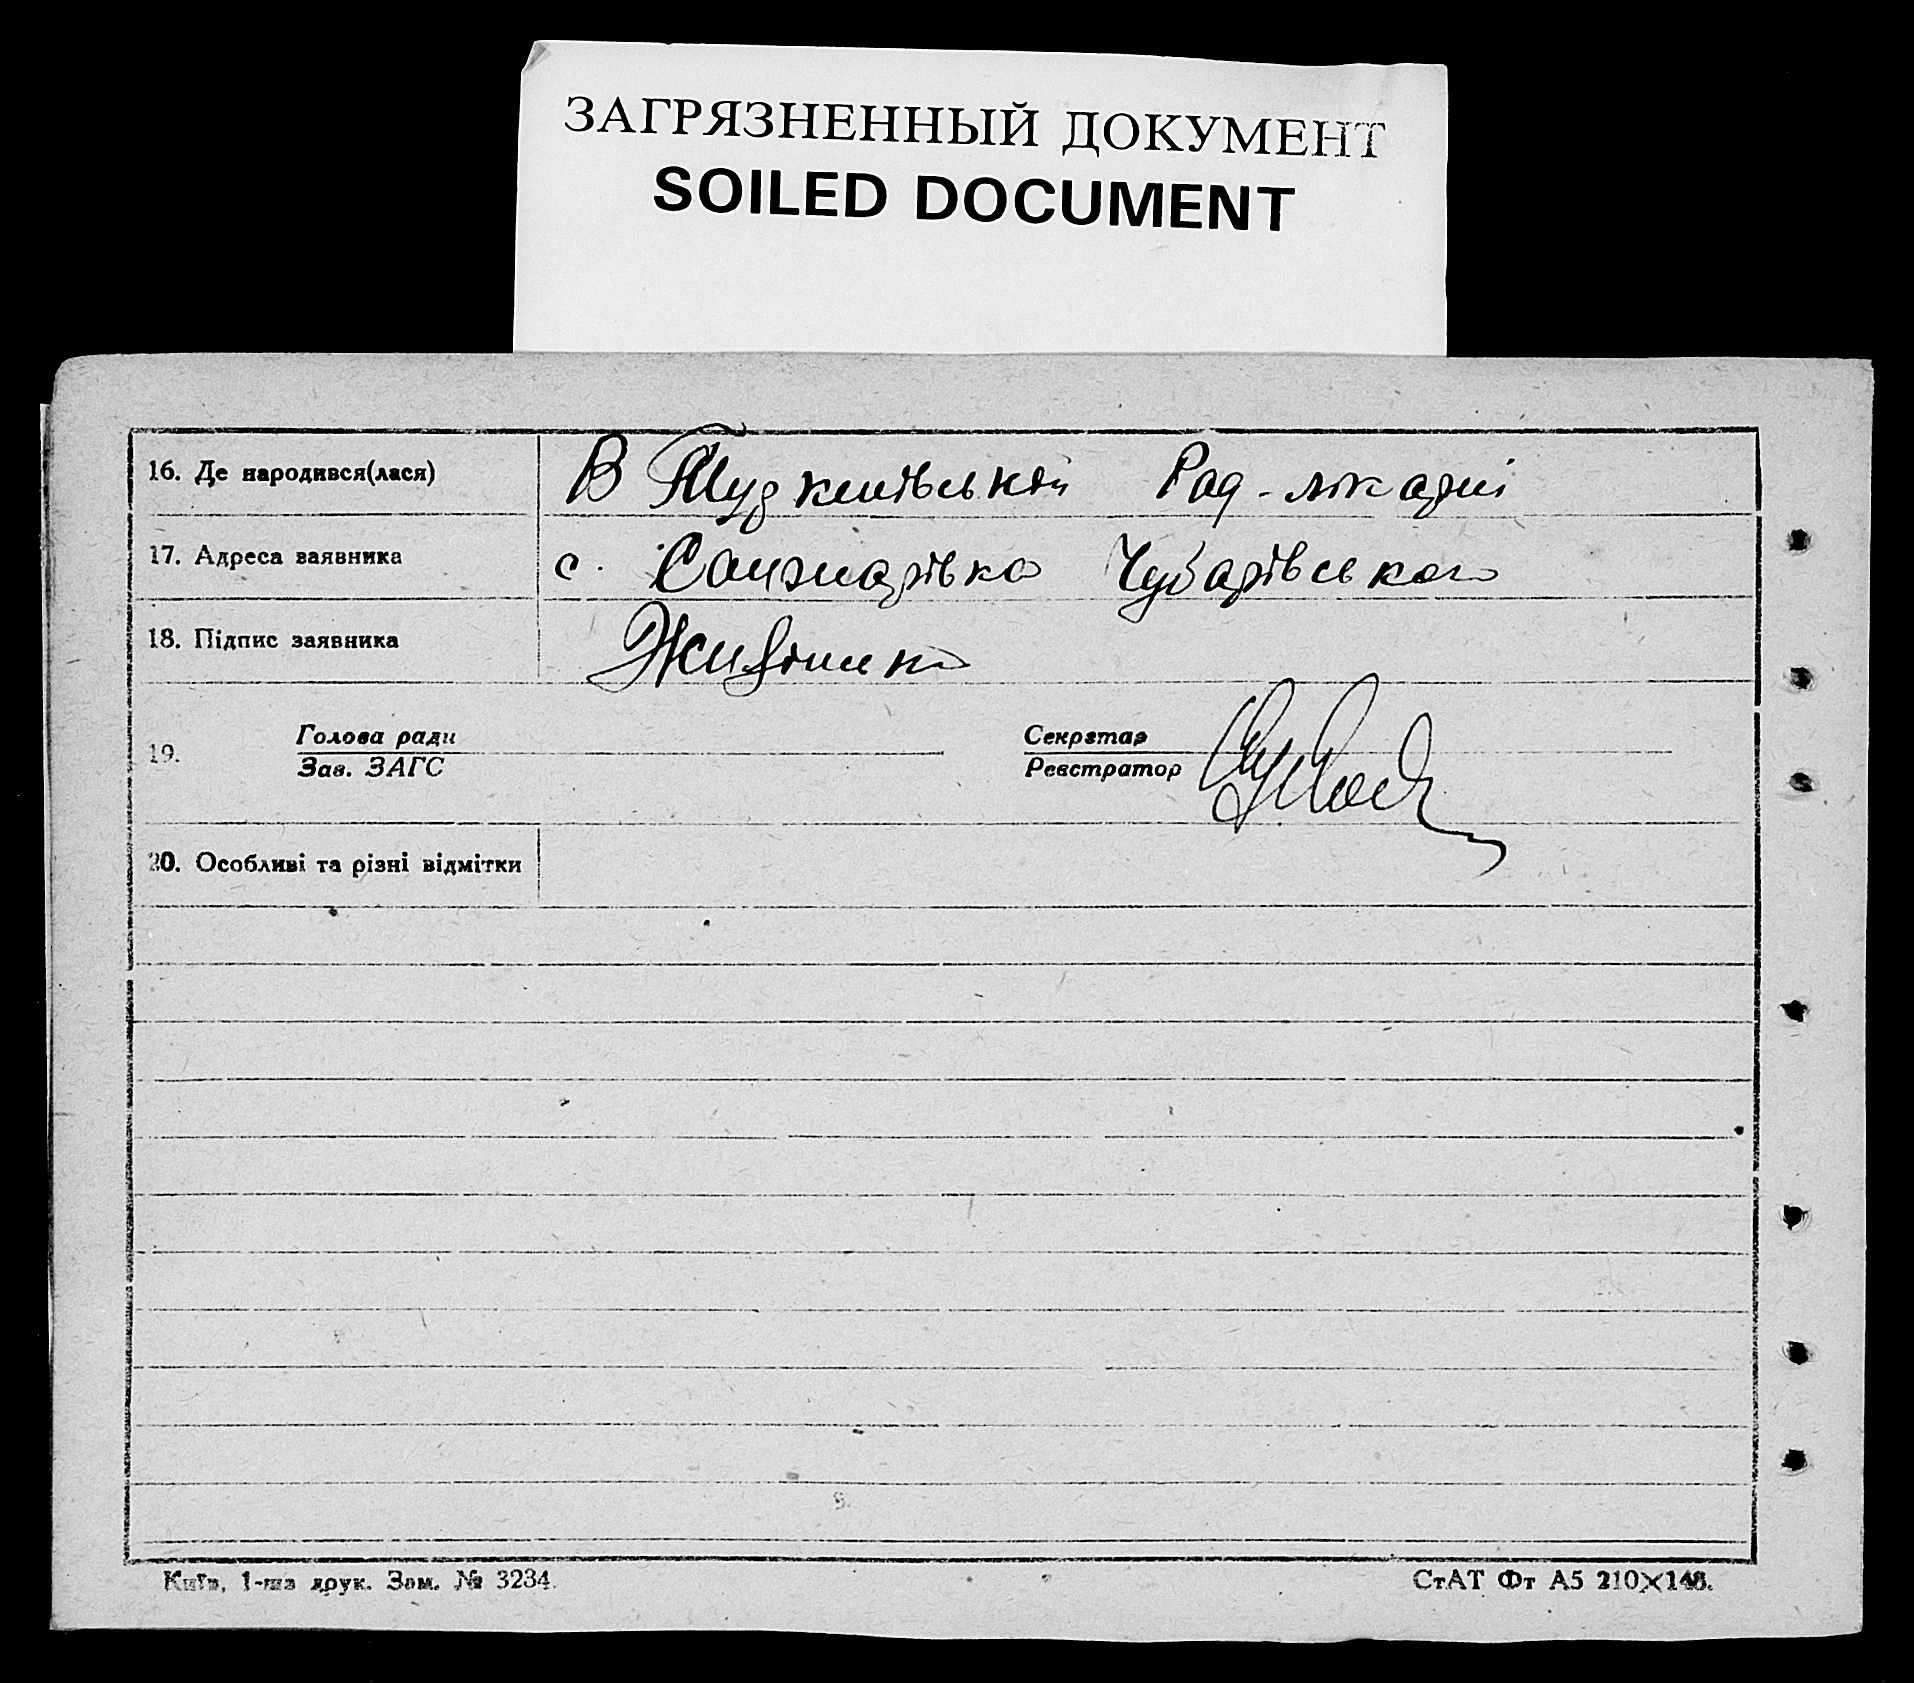 ЗАГРЯЗНЕННЫЙ ДОКУМЕНТ
SOILED DOCUMENT
16. Де народився(лася) В Рад-лікарні
17. Адреса заявника с. Санжарівка Чубарівського
18. Підпис заявника
19. Голова ради Секретар
Зав. ЗАГС Реєстратор
20. Особливі та різні відмітки
Київ, 1-ша друк. Зам. № 3234.
СтАТ Фт А5 210×148.